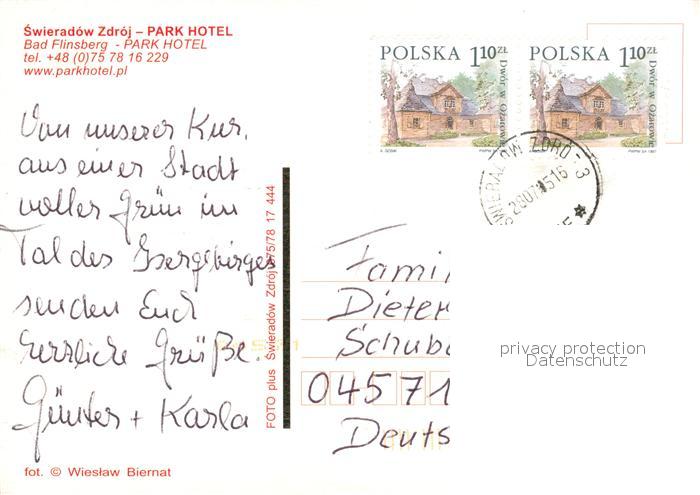 Świeradów Zdrój – PARK HOTEL
Bad Flinsberg - PARK HOTEL
tel. +48 (0)75 78 16 229
www.parkhotel.pl
POLSKA 1,10 ZŁ
Dwór w Ożarowie
POLSKA 1,10 ZŁ
Dwór w Ożarowie
ŚWIERADÓW ZDRÓJ 3
Von unserer Kur,
aus einer Stadt
voller Grün im
Tal des Isergebirges
senden Euch
herzliche Grüße.
Günter + Karla
FOTO plus Świeradów Zdrój 075/78 17 444
Famil
Dieter
Schub
04571
Deuts
privacy protection
Datenschutz
fot. © Wiesław Biernat